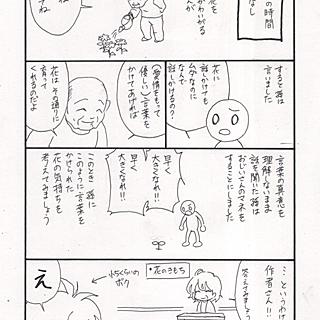 の時間
なし
花を
かわいがる
ね
てね
すると孫は
言いました
花に
話しかけても
ムダなのに
なんで
話しかけるの?
(愛情をもって
優しい)言葉を
かけてあげれば
花はその通りに
育って
くれるのだよ
言葉の真意を
理解しないまま
話を聞いた孫は
おじいさんのマネを
することにしました
早く
大きくなれ!!
早く
大きくなれ!!
このとき孫に
このように言葉を
かけられた
花の気持ちを
考えてみましょう
…というわけ
作者さん!!
答えてみましょう
・花のきもち
小5くらいの
ボク
え